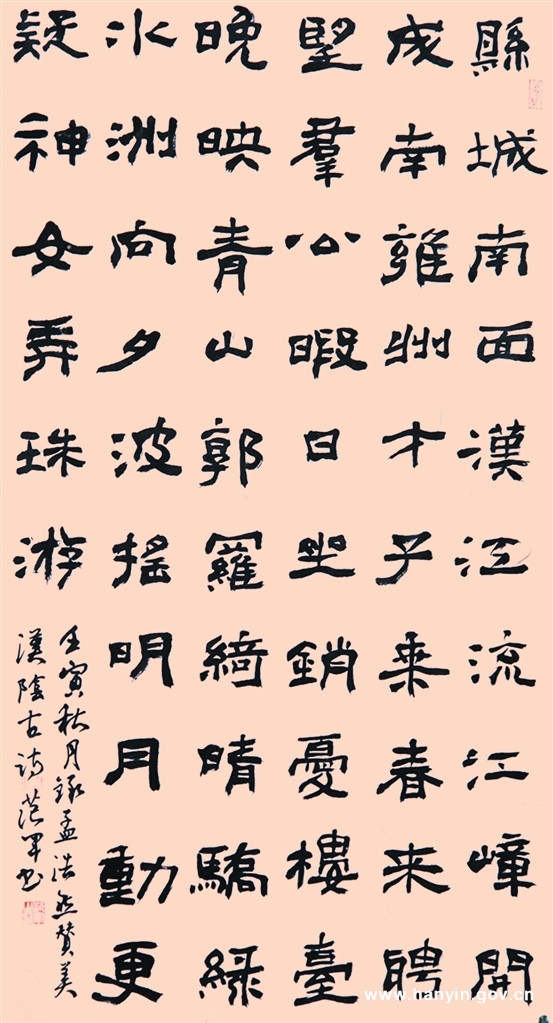 縣城南面漢江流江嶂開
成南雍州才子乘春來聘
朢羣公暇日坐銷憂樓臺
晚映青山郭羅綺晴驕綠
水洲向夕波搖明月動更
疑神女弄珠游
壬寅秋月錄孟浩然贊美
漢陰古詩范軍书
www.hanyin.gov.cn